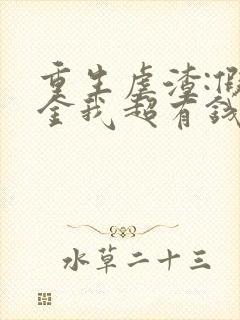 重生虐渣:假
全我超有钱
水草二十三